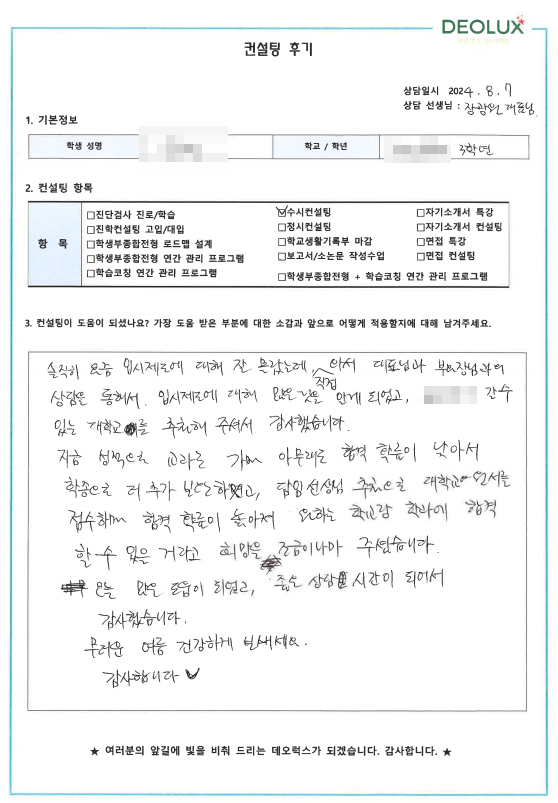 DEOLUX
컨설팅 후기
상담일시 2024. 8. 7
상담 선생님 : 장광원 대표님
1. 기본정보
학생 성명 학교 / 학년 3학년
2. 컨설팅 항목
항 목
□진단검사 진로/학습 ☑수시컨설팅 □자기소개서 특강
□진학컨설팅 고입/대입 □정시컨설팅 □자기소개서 컨설팅
□학생부종합전형 로드맵 설계 □학교생활기록부 마감 □면접 특강
□학생부종합전형 연간 관리 프로그램 □보고서/소논문 작성수업 □면접 컨설팅
□학습코칭 연간 관리 프로그램 □학생부종합전형 + 학습코칭 연간 관리 프로그램
3. 컨설팅이 도움이 되셨나요? 가장 도움 받은 부분에 대한 소감과 앞으로 어떻게 적용할지에 대해 남겨주세요.
솔직히 요즘 입시제도에 대해 잘 몰랐는데, 직접 와서 대표님과 부원장님과의
상담을 통해서 입시제도에 대해 많은 것을 알게 되었고, 갈 수
있는 대학교를 추천해 주셔서 감사했습니다.
지금 성적으로 교과는 아무래도 합격 확률이 낮아서
학종으로 더 추가 하였고, 담임선생님 추천으로 대학교 원서를
접수하며 합격 확률이 높아져 원하는 학교랑 학과에 합격
할 수 있을 거라고 희망을 조금이나마 주셨습니다.
오늘 많은 도움이 되었고, 좋은 상담 시간이 되어서
감사했습니다.
무더운 여름 건강하게 보내세요.
감사합니다
★ 여러분의 앞길에 빛을 비춰 드리는 데오럭스가 되겠습니다. 감사합니다. ★